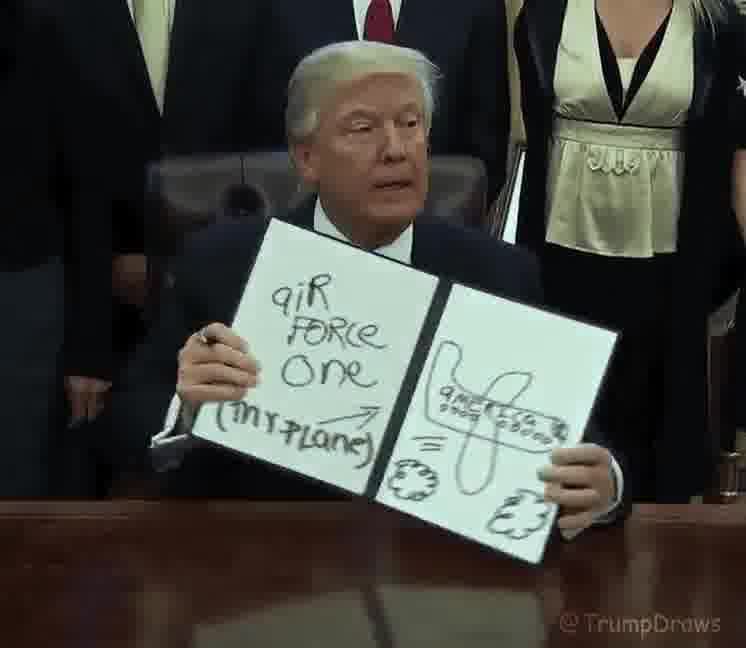 aiR
FORCe
One
(my PLane)
america
@TrumpDraws